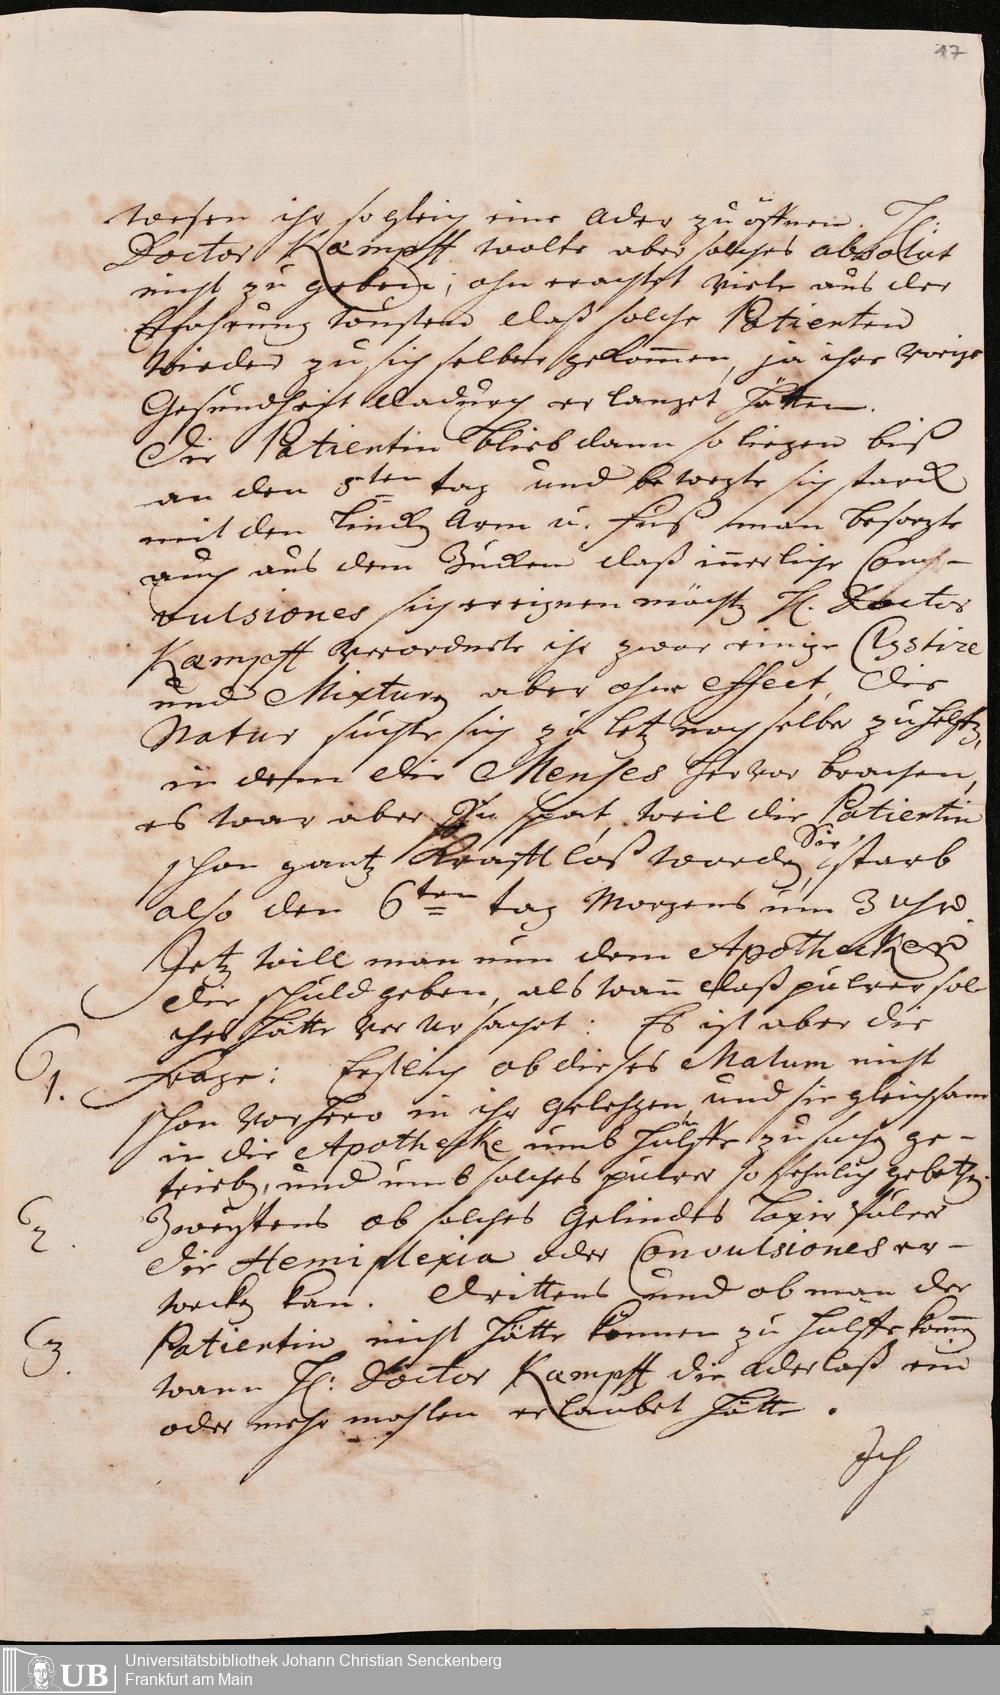 17
wesen ihr so gleich eine Ader zu öffnen. H:
Doctor Kæmpff wolte aber solches absolut
nicht zu geben; ohn erachtet viele aus der
Erfahrung wusten daß solche Patienten
wieder zu sich selber gekom̄en, ja ihre vorige
Gesundheit dadurch erlanget hätten.
Die Patientin blieb dann so liegen biß
an den 5ten tag und bewegte sich starck
mit den lincken Arm u. Fuß man besorgte
auch aus dem Zucken daß in̄erliche Con-
vulsiones sich ereignen möchten H. Doctor
Kæmpff verordnete ihr zwar einige Clystire
und Mixturen aber ohne effect. Die
Natur suchte sich zu letz noch selber zu helffen,
in dem die Menses hervor brachen,
es war aber zu spat, weil die Patientin
schon gantz Krafftloß worden, Sie starb
also den 6ten tag Morgens um 3 uhr.
Jetz will man nun dem Apothecker
die schuld geben, als wan̄ daß pulver sol
ches hätte verursachet: Es ist aber die
1. Frage: Erstlich ob dieses Malum nicht
schon vorhero in ihr gelegen, und sie gleichsam
in die Apothecke umb hülffe zu suchen ge-
trieben, und umb solches pulver so sehnlich gebethen.
2. Zweytens ob solches gelindes laxir pulver
die Hemiplexia oder Convulsiones er-
wecken kan. Drittens und ob man der
3. Patientin nicht hätte können zu hülffe kom̄en
wann H: Doctor Kæmpff die aderlaß ein
oder mehr mahlen erlaubet hätte.
Ich
UB Universitätsbibliothek Johann Christian Senckenberg
Frankfurt am Main